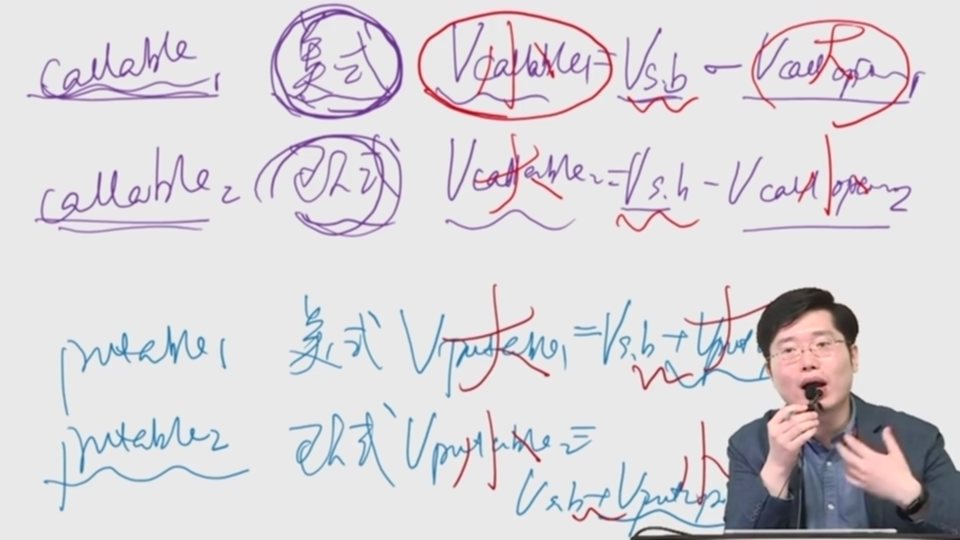 callable1 美式 Vcallable1 = Vs.b - Vcall option1
小 大
callable2 欧式 Vcallable2 = Vs.b - Vcall option2
大 小
putable1 美式 Vputable1 = Vs.b + Vput
大 大
putable2 欧式 Vputable2 =
小
Vs.b + Vput op
小